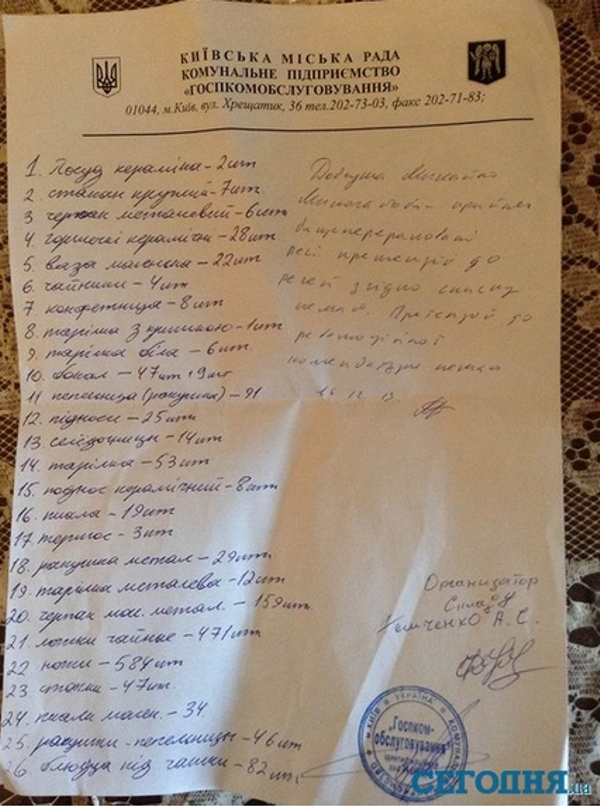 КИЇВСЬКА МІСЬКА РАДА
КОМУНАЛЬНЕ ПІДПРИЄМСТВО
«ГОСПКОМОБСЛУГОВУВАННЯ»
01044, м.Київ, вул. Хрещатик, 36 тел.202-73-03, факс 202-71-83;
1. Посуд кераміка - 2 шт
2. стакан круглий - 7 шт.
3 черпак металевий - 6 шт
4. горшочкі керамічні - 28 шт
5 ваза - 22 шт
6 чайники - 4 шт
7 конфетница - 8 шт
8 тарілка з кришкою - 1 шт
9. тарілка біла - 6 шт.
10. бокал - 47 шт
11 пепельница (ракушка) - 91
12. підноси - 25 шт
13. селёдочницы - 14 шт
14. тарілка - 53 шт
15. поднос керамічний - 8 шт
16. пиала - 19 шт
17. термос - 3 шт
18. ракушка метал - 29 шт.
19. тарілка металева - 12 шт
20. черпак метал. - 159 шт.
21. ложки чайные - 471 шт
22 ножи - 584 шт
23 стопки - 47 шт.
24. пиали - 34
25. ракушки - пепельницы - 46 шт
26 блюдца під чашки - 82 шт
прийняв
всі претензій до
речей згідно списку
немає. Претензій до
комендатури немає
Организатор
Склада
А.С.
м.КИЇВ УКРАЇНА
„Госпком-
обслуговування"
СЕГОДНЯ.ua